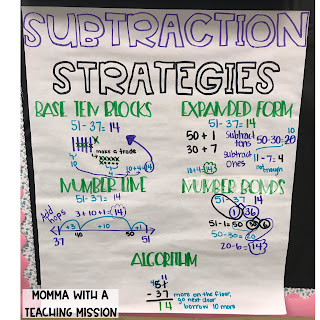 SUBTRACTION
STRATEGIES
BASE TEN BLOCKS
51-37=14
make a trade
10+4=14
EXPANDED FORM
51-37=14
50+1
30+7
subtract tens
50-30=20
10
subtract ones
11-7=4
10+4=14
NUMBER LINE
51-37=14
Add hops
3+10+1=14
+3 +10 +1
37 40 50 51
NUMBER BONDS
51-37 14
1 36
51-1=50 30 6
50-30=20
20-6=14
ALGORITHM
4 11
51
-37
14
more on the floor,
go next door
borrow 10 more
MOMMA WITH A
TEACHING MISSION